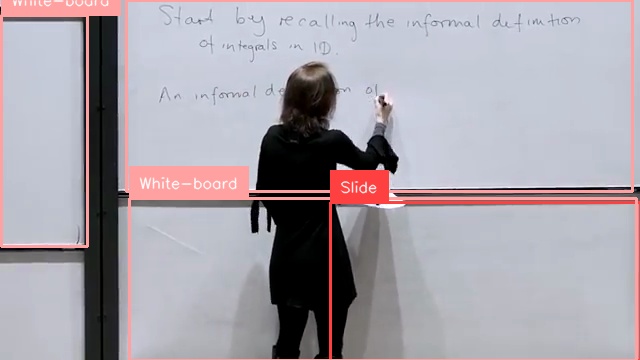 White-board
Start by recalling the informal definition
of integrals in 1D.
An informal of
White-board
Slide